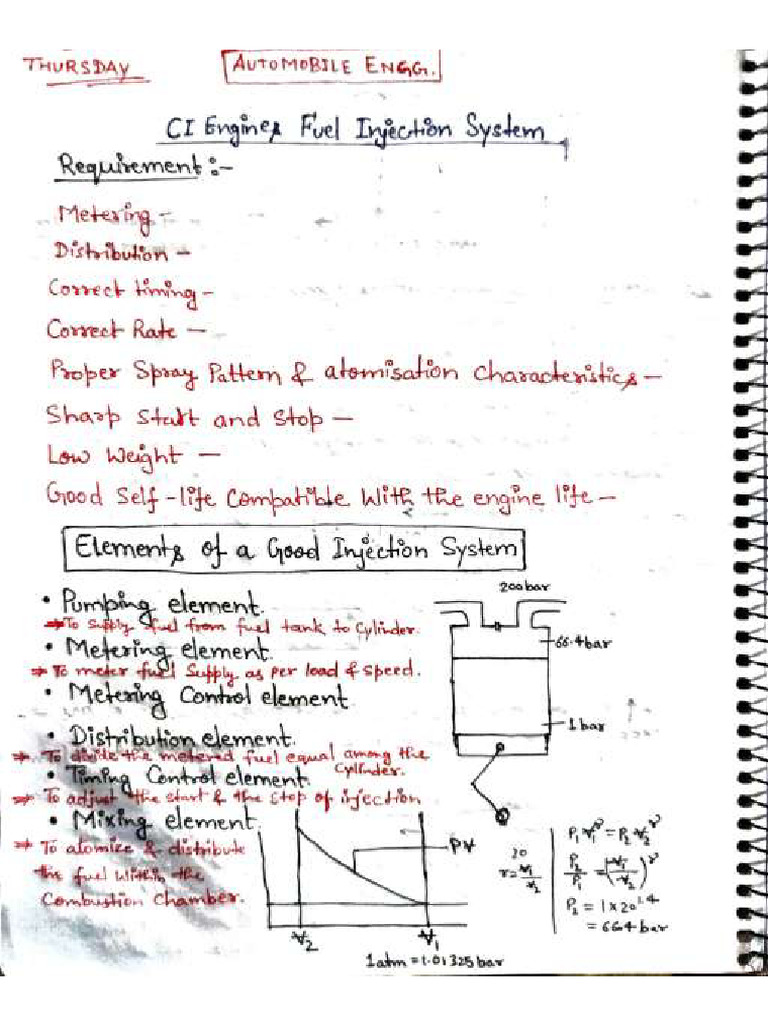 THURSDAY
AUTOMOBILE ENGG.
CI Engines Fuel Injection System
Requirement :-
Metering -
Distribution -
Correct timing -
Correct Rate -
Proper Spray Pattern & atomisation characteristics -
Sharp start and stop -
Low Weight -
Good Self-life Compatible With the engine life -
Elements of a Good Injection System
• Pumping element.
⇒ To supply fuel from fuel tank to Cylinder.
• Metering element.
⇒ To meter fuel Supply as per load & speed.
• Metering Control element
• Distribution element.
⇒ To divide the metered fuel equal among the
Cylinder.
• Timing Control element.
⇒ To adjust the start & the stop of injection
• Mixing element.
⇒ To atomize & distribute
the fuel within the
Combustion Chamber.
200bar
66.4bar
1bar
PV
V₂
V₁
1atm = 1.01325 bar
20
r = V₁/V₂
P₁V₁^γ = P₂V₂^γ
P₂/P₁ = (V₁/V₂)^γ
P₂ = 1 x 20^1.4
= 66.4 bar